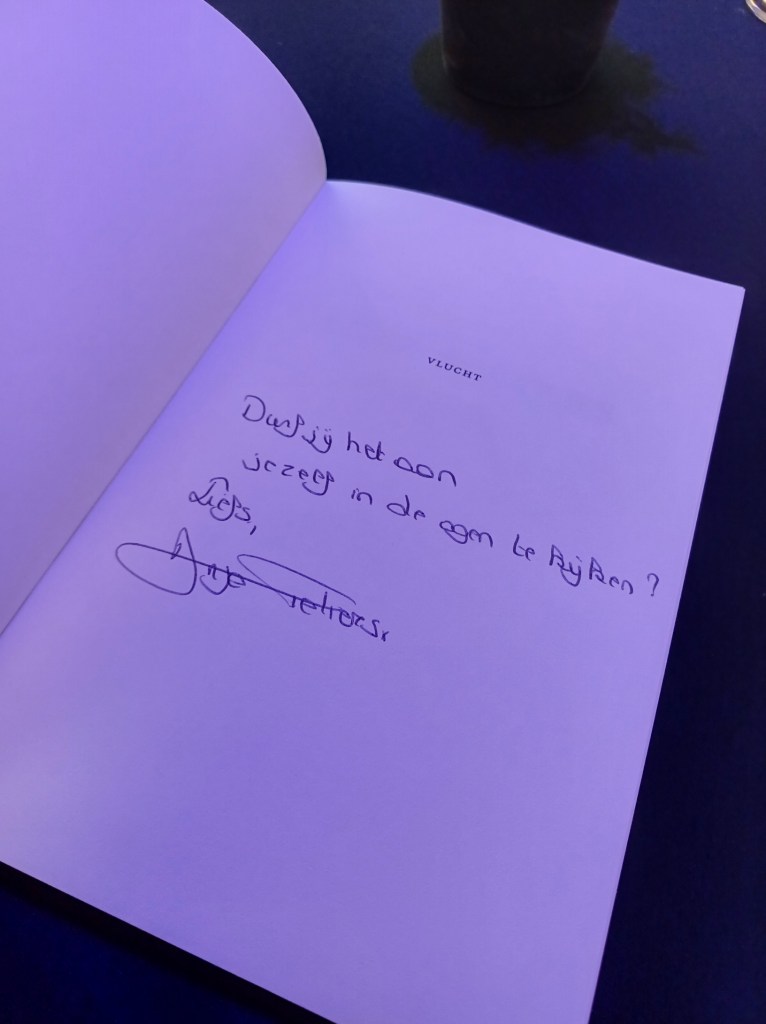 VLUCHT
Durf jij het aan
jezelf in de ogen te kijken?
Liefs,